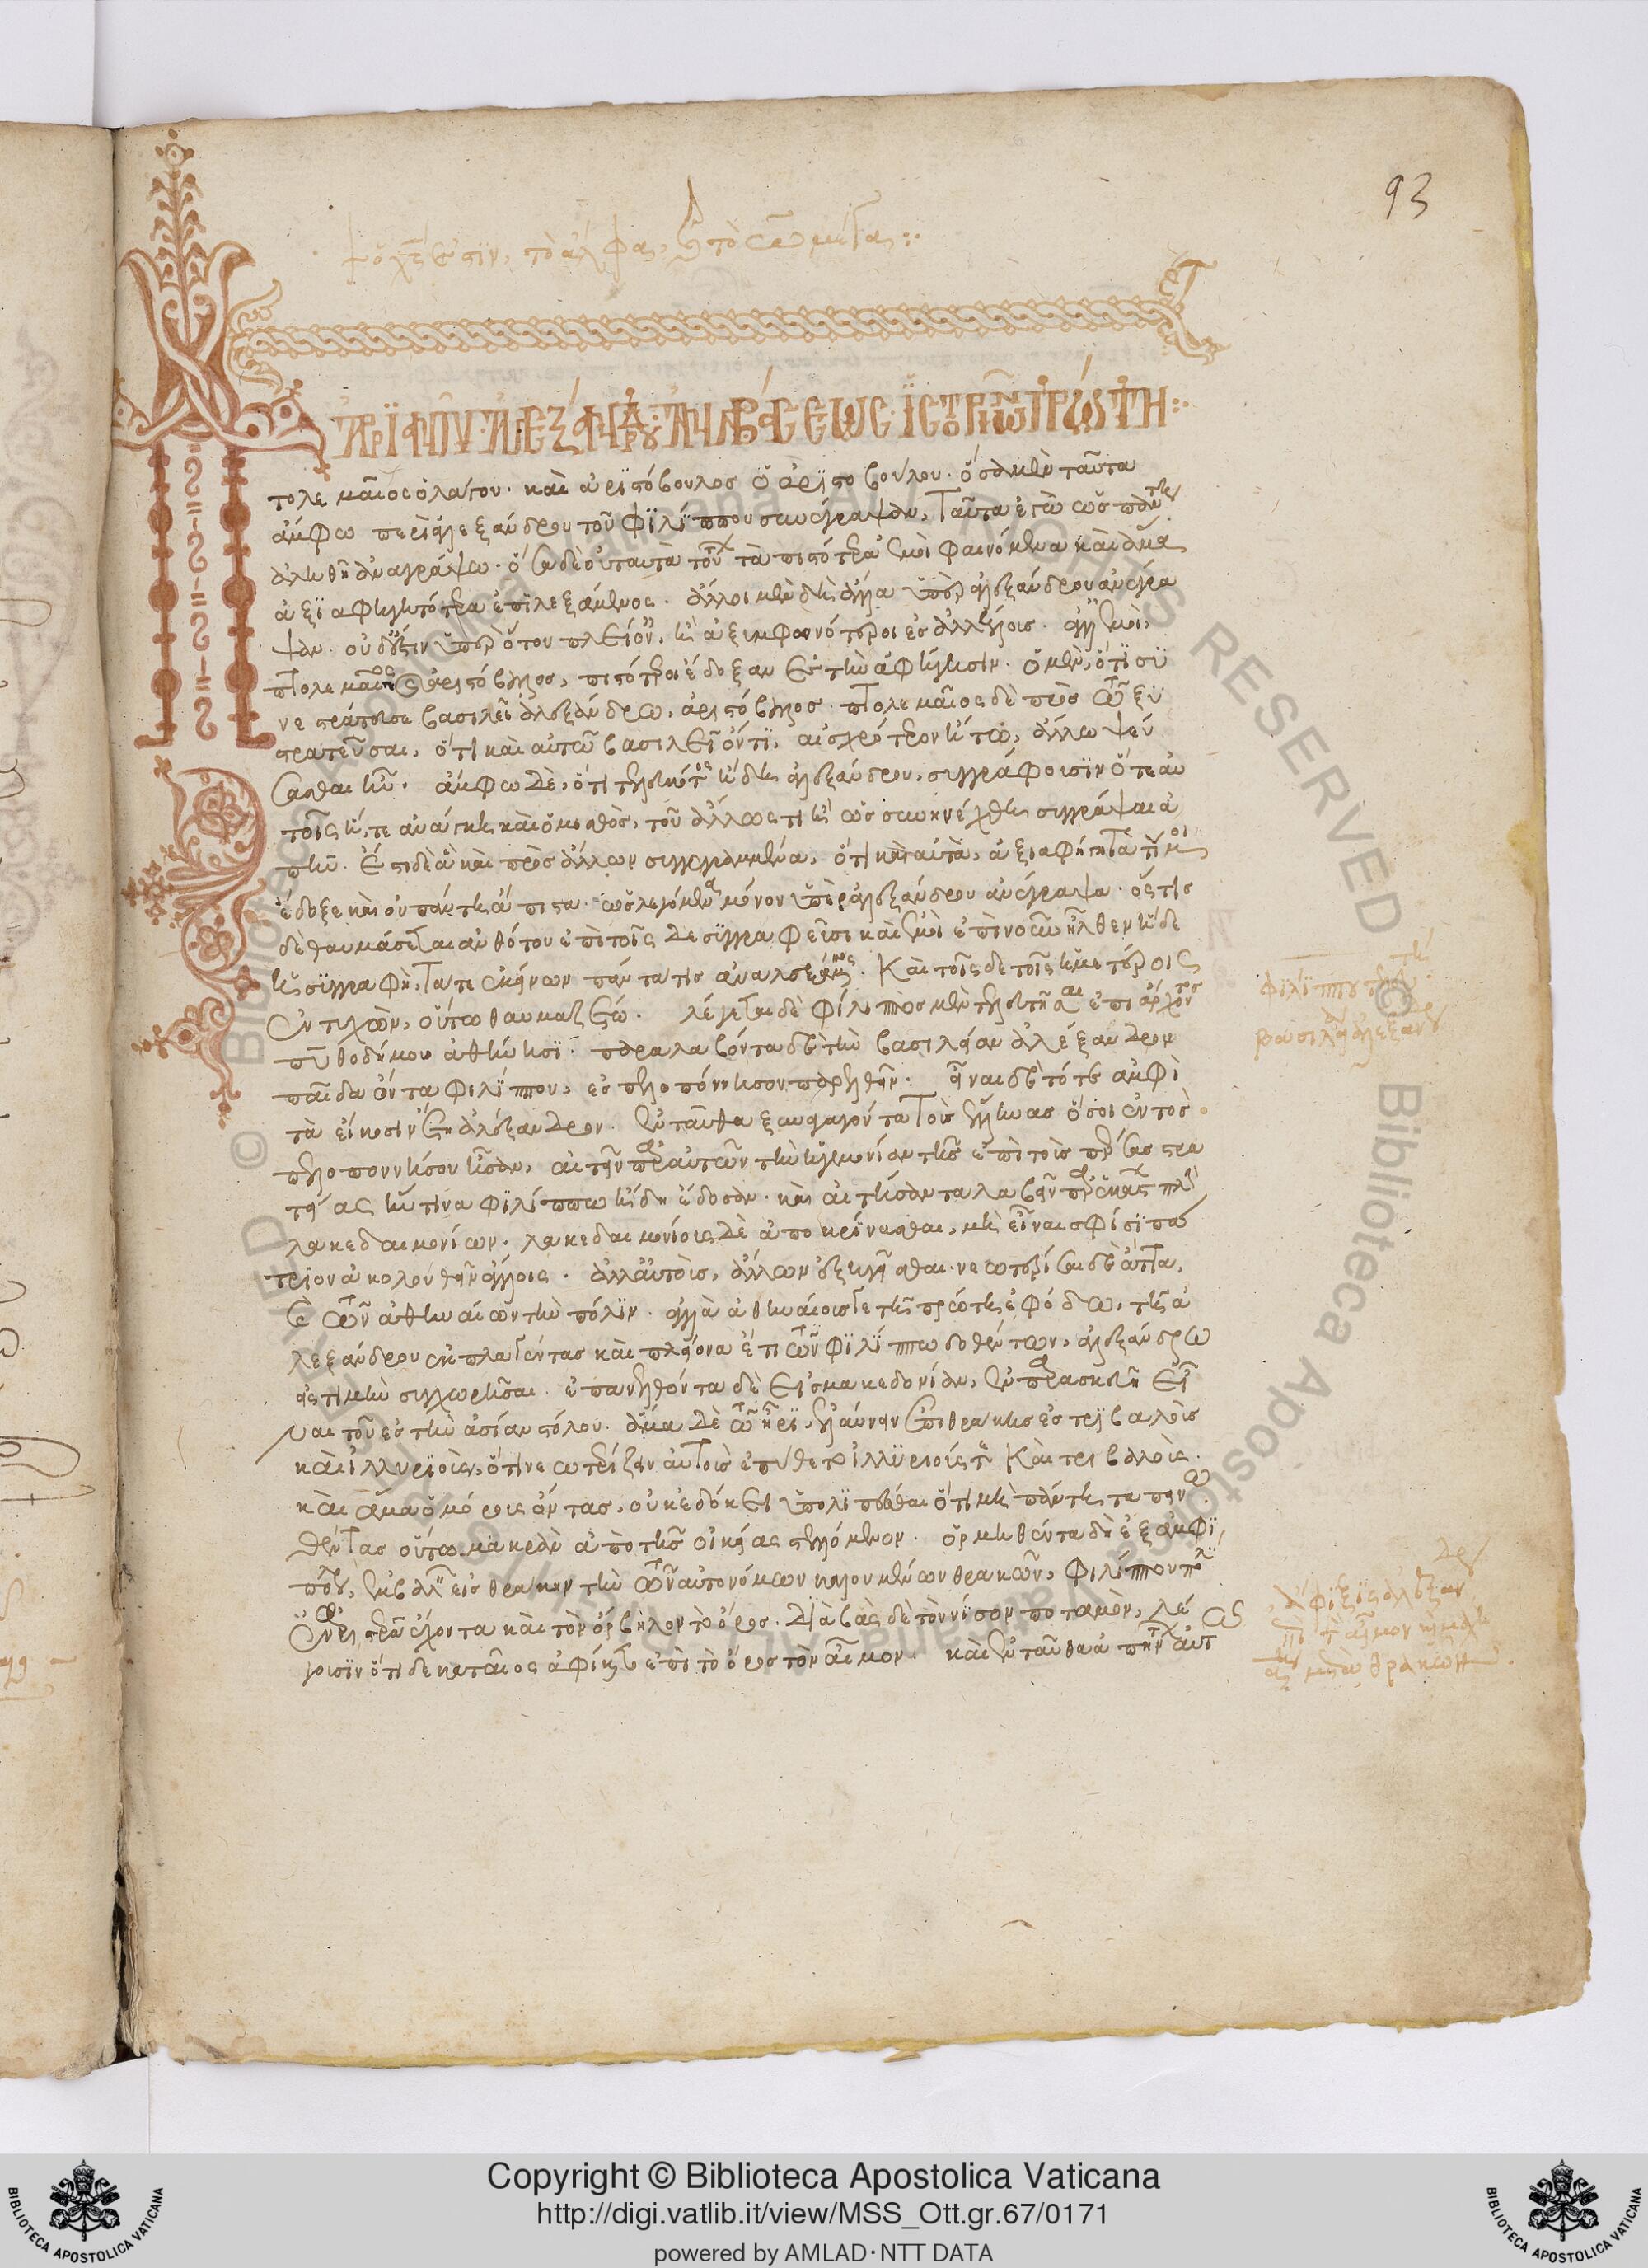 93
ἀρϊανοῦ ἀλεξάνδρου ἀναβάσεως ἱστοριῶν πρώτη:
τολεμαῖος ὁ λάγου. καὶ ἀριστόβουλος ὁ ἀριστοβούλου. ὅσα μὲν ταῦτα
ἄμφω περὶ ἀλεξάνδρου τοῦ φιλίππου συνέγραψαν, ταῦτα ἐγὼ ὡς πάντη
ἀληθῆ ἀναγράφω. ὅσα δὲ οὐ ταυτὰ τούτων τὰ πιστότερα ἐμοὶ φαινόμενα καὶ ἅμα
ἀξιαφηγητότερα ἐπιλεξάμενος. ἄλλοι μὲν δὴ ἄλλα ὑπὲρ ἀλεξάνδρου ἀνέγρα
ψαν. οὐδ' ἔστιν ὑπὲρ ὅτου πλείονες, ἢ ἀξυμφωνότεροι ἐς ἀλλήλους. ἀλλ' ἐμοὶ,
πτολεμαῖος καὶ ἀριστόβουλος, πιστότεροι ἔδοξαν ἐς τὴν ἀφήγησιν. ὁ μὲν, ὅτι συ
νεστράτευσε βασιλεῖ ἀλεξάνδρω, ἀριστόβουλος. πτολεμαῖος δὲ πρὸς τῶ ξυ
στρατεῦσαι, ὅτι καὶ αὐτῶ βασιλεῖ ὄντι, αἰσχρότερον ἤ τω, ἄλλω ψεύ
σασθαι ἦν. ἄμφω δὲ, ὅτι τετελευτηκότος ἤδη ἀλεξάνδρου, συγγράφουσιν ὅτε αὐ
τοῖς ἥ, τε ἀνάγκη καὶ ὁ μισθὸς, τοῦ ἄλλως τι ἢ ὡς συνηνέχθη συγγράψαι ἀ
πῆν. ἔστι δὲ ἃ καὶ πρὸς ἄλλων συγγεγραμμένα, ὅτι καὶ αὐτὰ, ἀξιαφήγητά τέ μοι
ἔδοξε καὶ οὐ πάντη ἄπιστα. ὡς λεγόμενα μόνον ὑπὲρ ἀλεξάνδρου ἀνέγραψα. ὅστις
δὲ θαυμάσεται ἀνθ' ὅτου ἐπὶ τοῖς δε συγγραφεῦσι καὶ ἐμοὶ ἐπὶ νοῦν ἦλθεν ἥδε
ἐντυχὼν, οὕτω θαυμαζέτω. λέγεται δὲ φίλιππος μὲν τελευτῆσαι ἐπὶ ἄρχοντος
πυθοδήμου ἀθήνησι. παραλαβόντα δὲ τὴν βασιλείαν ἀλέξανδρον
παῖδα ὄντα φιλίππου, ἐς πελοπόννησον παρελθεῖν. εἶναι δὲ τότε ἀμφὶ
τὰ εἴκοσιν ἔτη ἀλέξανδρον. ἐνταῦθα ξυναγαγόντα τοὺς ἕλληνας ὅσοι ἐντὸς
πελοποννήσου ἦσαν, αἰτεῖν παρ' αὐτῶν τὴν ἡγεμονίαν τῆς ἐπὶ τοὺς πέρσας στρα
τείας ἥντινα φιλίππω ἤδη ἔδοσαν. καὶ αἰτήσαντα λαβεῖν παρὰ πάντων πλὴν
λακεδαιμονίων. λακεδαιμονίους δὲ ἀποκρίνασθαι, μὴ εἶναι σφίσι πά
τριον ἀκολουθεῖν ἄλλοις. ἀλλ' αὐτοὺς, ἄλλων ἐξηγεῖσθαι. νεωτερίσαι δὲ ἄττα,
τῶν ἀθηναίων τὴν πόλιν. ἀλλὰ ἀθηναίους τε τῆ πρώτη ἐφόδω, τῆ ἀ
λεξάνδρου ἐκπλαγέντας καὶ πλείονα ἔτι τῶν φιλίππω δοθέντων, ἀλεξάνδρω
ἐς τιμὴν συγχωρῆσαι. ἐπανελθόντα δὲ εἰς μακεδονίαν, ἐν παρασκευῆ εἶ
ναι τοῦ ἐς τὴν ἀσίαν στόλου. ἅμα δὲ τῶ ἦρι, ἐλαύνειν ἐπὶ θράκης ἐς τριβαλοὺς
καὶ ἰλλυριοὺς, ὅτι νεωτερίζειν αὐτοὺς ἐπύθετο ἰλλυριούς τε καὶ τριβαλούς.
καὶ ἅμα ὁμόρους ὄντας, οὐκ ἐδόκει ὑπολιπέσθαι ὅτι μὴ πάντη ταπεινω
θέντας οὕτω μακρὰν ἀπὸ τῆς οἰκείας στελλόμενον. ὁρμηθέντα δὴ ἐξ ἀμφι
πόλεως, ἐμβαλεῖν εἰς θράκην τὴν τῶν αὐτονόμων καλουμένων θρακῶν, φιλίππου πόλιν
ἐν ἀριστερᾶ ἔχοντα καὶ τὸν ὄρβηλον τὸ ὄρος. διαβὰς δὲ τὸν νίσσον ποταμὸν, λέ
γουσιν ὅτι δεκαταῖος ἀφίκετο ἐπὶ τὸ ὄρος τὸν αἷμον. καὶ ἐνταῦθα ἀπήντων αὐτῶ
Copyright © Biblioteca Apostolica Vaticana
http://digi.vatlib.it/view/MSS_Ott.gr.67/0171
powered by AMLAD·NTT DATA
BIBLIOTECA APOSTOLICA VATICANA
BIBLIOTECA APOSTOLICA VATICANA